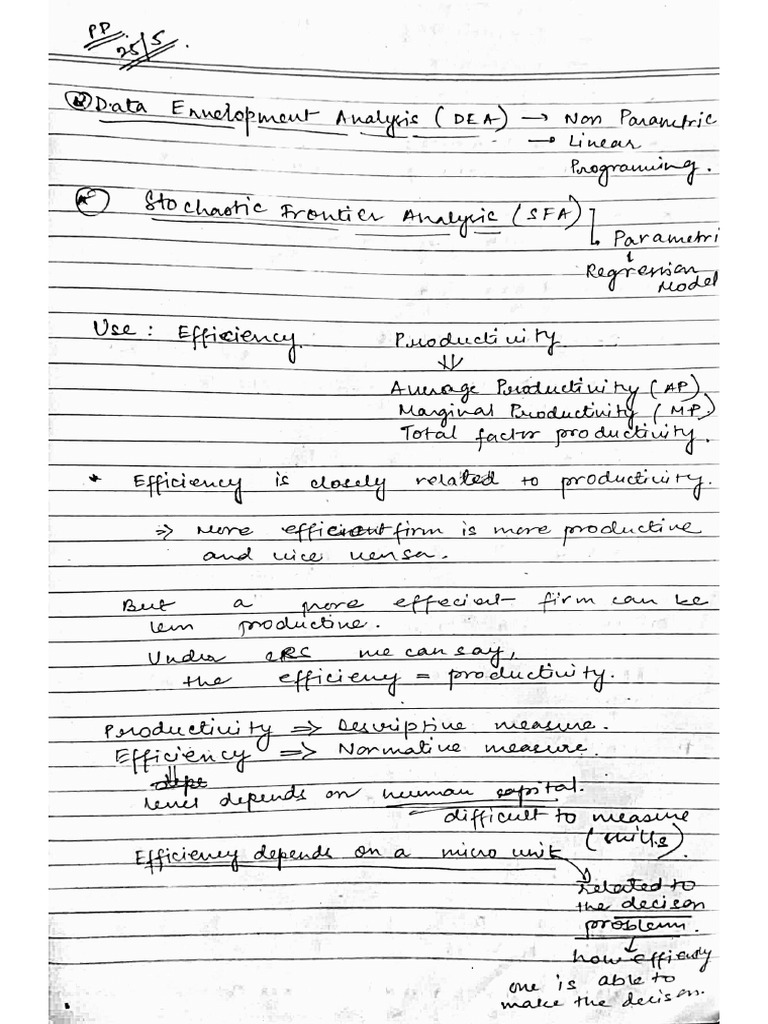 PP
25/5.
Data Envelopment Analysis (DEA) → Non Parametric
→ Linear
Programing.
Stochastic Frontier Analysis (SFA)
Parametri
Regression
Model
Use : Efficiency. Productivity
⇓
Average Productivity (AP).
Marginal Productivity (MP)
Total factor productivity.
* Efficiency is closely related to productivity.
⇒ More efficient firm is more productive
and vice versa.
But a more effecient firm can be
less productive.
Under CRS we can say,
the efficiency = productivity.
Productivity ⇒ Descriptive measure.
Efficiency ⇒ Normative measure.
⇓
depe
level depends on human capital.
difficult to measure
(skills)
Efficiency depends on a micro unit
related to
the decison
problem.
↓
how efficienly
one is able to
make the decison.